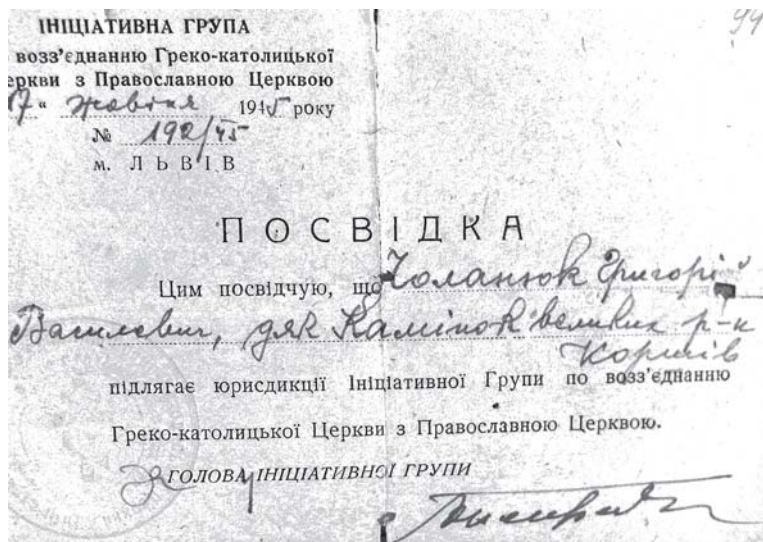 94
ІНІЦІАТИВНА ГРУПА
возз'єднанню Греко-католицької
еркви з Православною Церквою
17" жовтня 1945 року
№ 192/45
м. ЛЬВІВ
ПОСВІДКА
Цим посвідчую, що Чоланюк Григорій
Василевич, дяк Камінок великих р-н
Коршів
підлягає юрисдикції Ініціативної Групи по возз'єднанню
Греко-католицької Церкви з Православною Церквою.
За ГОЛОВА ІНІЦІАТИВНОЇ ГРУПИ